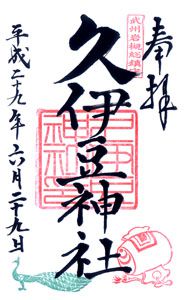 奉拝
武州岩槻総鎮守
久伊豆神社
平成二十九年六月二十九日